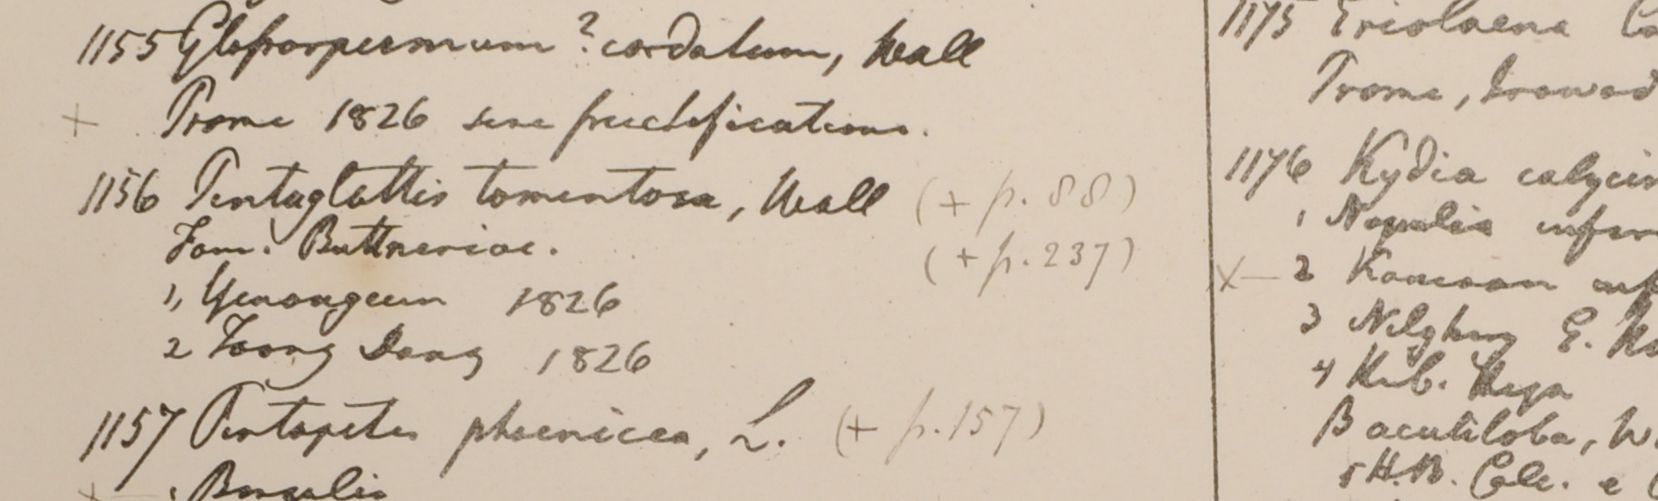 1155 Glossospermum? cordatum, Wall
+ Prome 1826 sine fructificatione.
1156 Pentaglottis tomentosa, Wall (+ p. 88)
Fam. Buttneriac. (+ p. 237)
1, Yenangeum 1826
2 Toong Dong 1826
1157 Pentapetes phoenicea, L. (+ p. 157)
Bengalis
1175 Eriolaena Ca
Prome, Irawad
1176 Kydia calycin
1 Napalia
X— 2 Kamoon
3 Nilghery E.
4 Herb.
B acutiloba, W
5 H.B. Calc. e